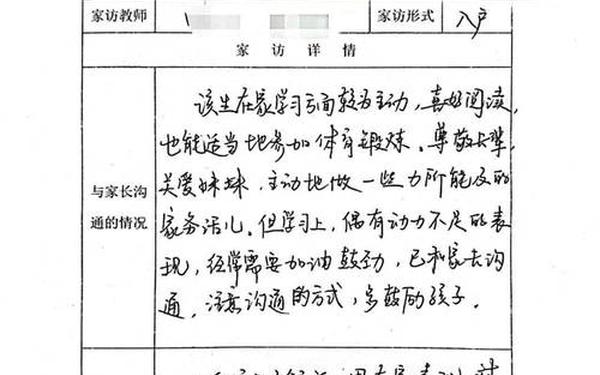 家访教师 家访形式 入户
家访详情
与家长沟
通的情况
该生在家学习方面较为主动，喜好阅读，
也能适当地参加体育锻炼。尊敬长辈，
关爱妹妹，主动地做一些力所能及的
家务活儿。但学习上，偶有动力不足的表
现，经常需要加油鼓劲，已和家长沟
通，注意沟通的方式，多鼓励孩子。